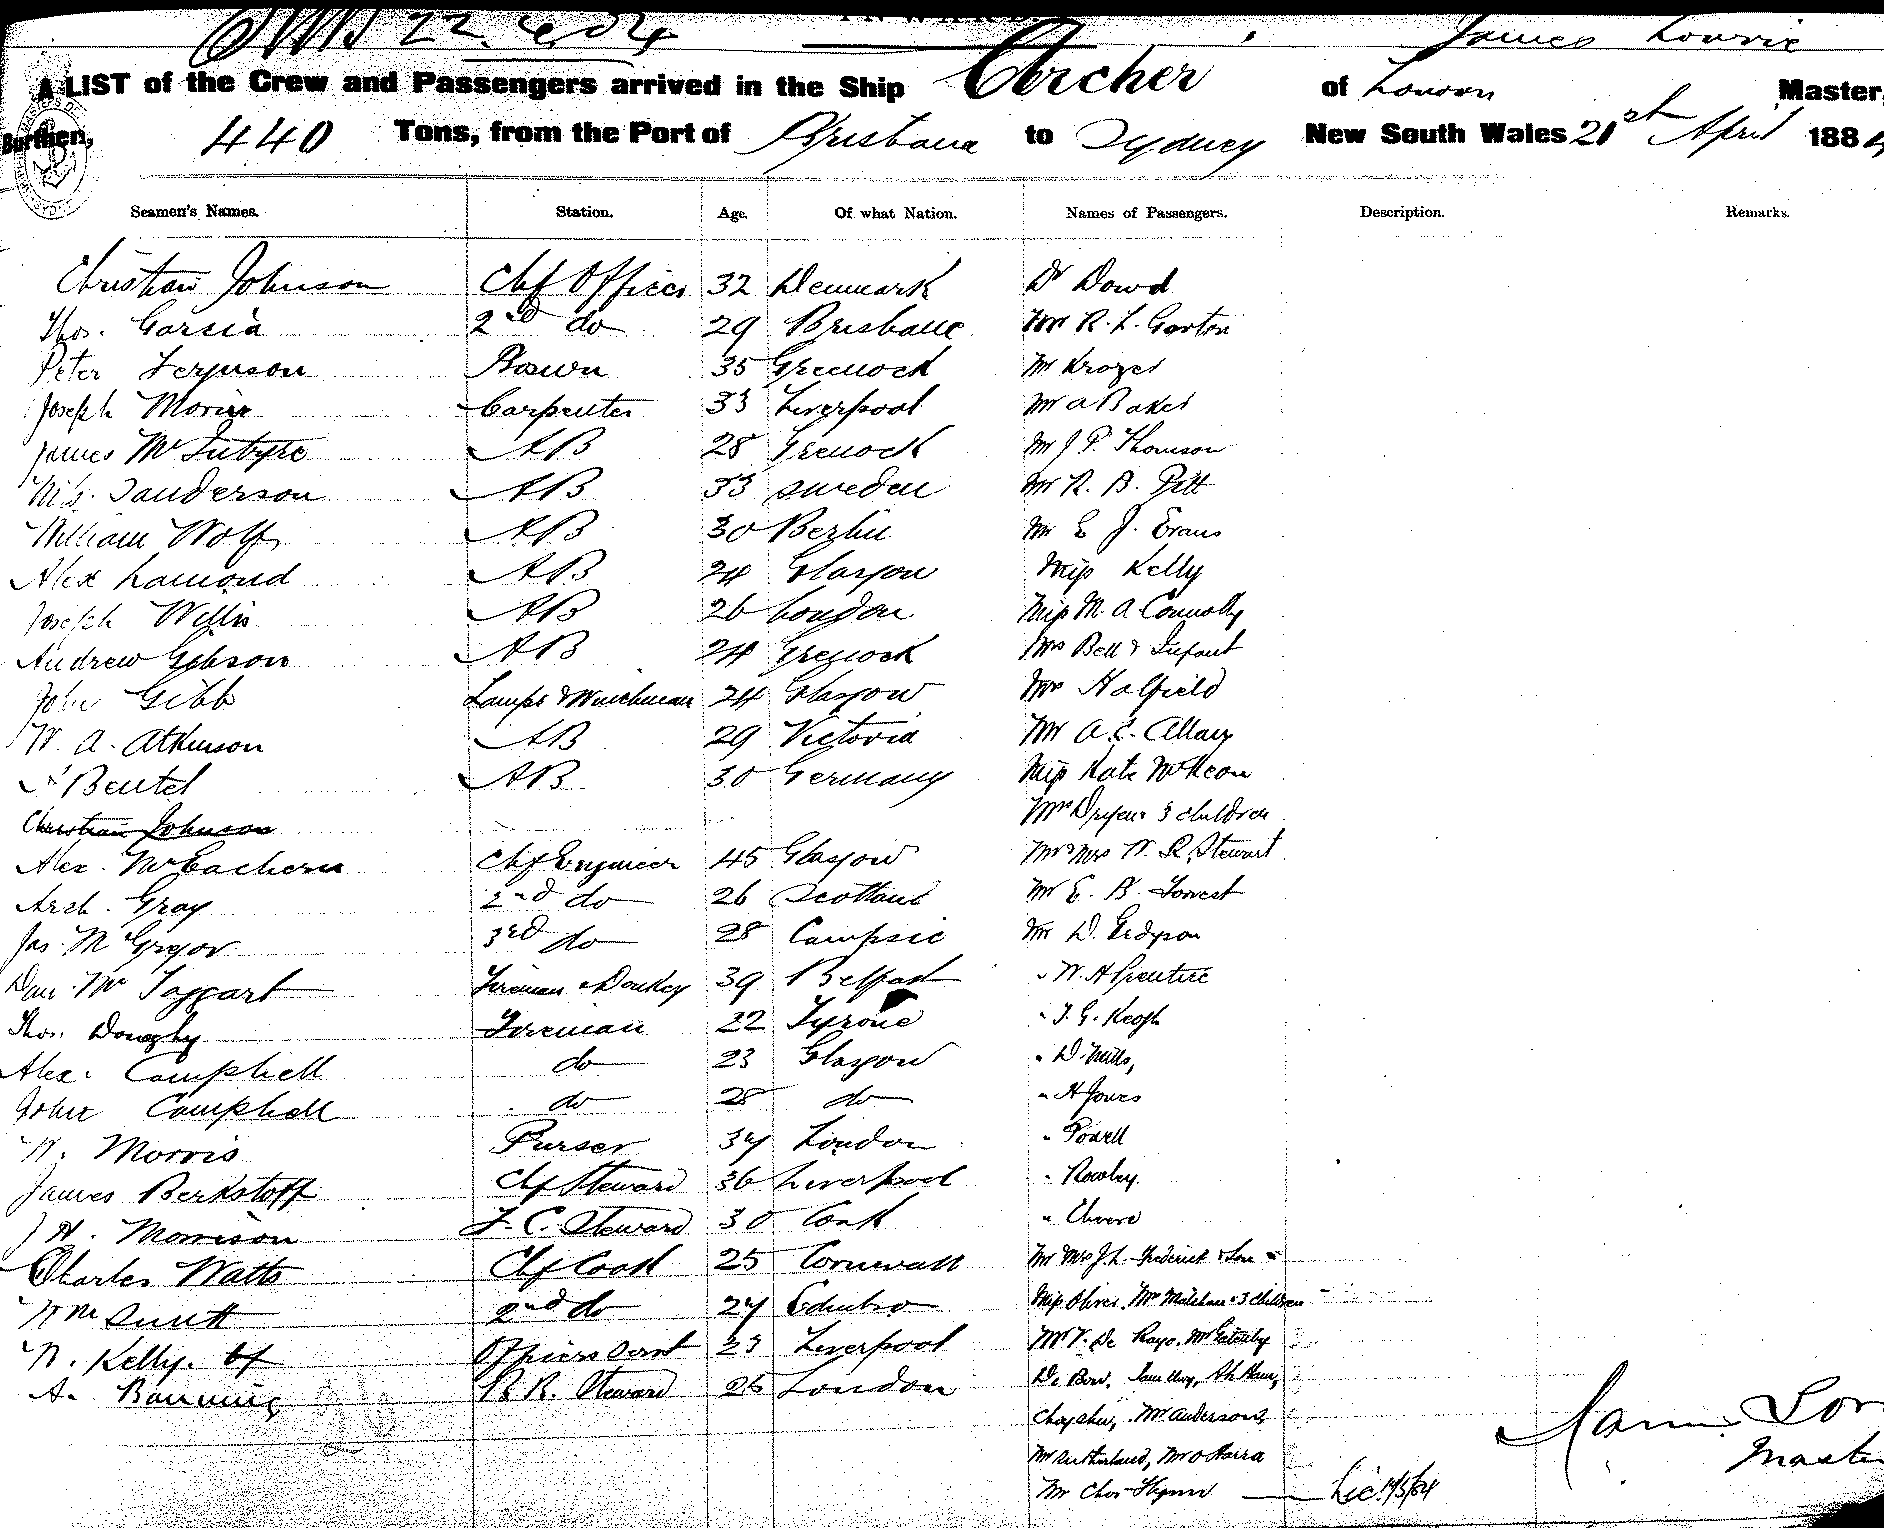 James Lowrie
A LIST of the Crew and Passengers arrived in the Ship Archer of London Master,
Burthen, 440 Tons, from the Port of Brisbane to Sydney New South Wales 21st April 1884
Seamen's Names. Station. Age. Of what Nation. Names of Passengers. Description. Remarks.
Christian Johnson Chf Officer 32 Denmark Dr Dowd
Thos. Garsia 2nd do 29 Brisbane Mr R. L. Garton
Peter Ferguson Boswn 35 Greenock Mr Krozer
Joseph Morris Carpenter 33 Liverpool Mr A Baker
James McIntyre AB 28 Grenock Mr J P. Thomson
Nils. Sanderson AB 33 Sweden Mr R. B. Pitt
William Wolf AB 30 Berlin Mr E J. Evans
Alex Lamond AB 24 Glasgow Miss Kelly
Joseph Willis AB 26 London Miss M. A Connolly
Andrew Gibson AB 24 Grenock Mrs Bell & Infant
John Gibb Lamps & Winchman 24 Glasgow Hatfield
W. A. Atkinson AB 29 Victoria Mr A. C. Allan
Beutel AB 30 Germany Miss Kate McKeon
Christian Johnson Mrs 3 children
Alex. McEachern Chf Engineer 45 Glasgow Mr & Mrs W. R. Stewart
Arch. Gray 2nd do 26 Scotland Mr E. B. Forrest
Jas. McGregor 3rd do 28 Campsie Mr D.
Dan. McTaggart Fireman & Donkey 39 Belfast " W. A Prentice
Thos. Donaghy Fireman 22 Tyrone " J. G. Keogh
Alex. Campbell do 23 Glasgow " D. Mills,
John Campbell do 28 do " H Jones
W. Morris Purser 34 London " Powell
James Berkstoff Chf Steward 36 Liverpool " Rowley
J H. Morrison F. C. Steward 30 Cork "
Charles Watts Chf Cook 25 Cornwall Mr Mrs J. L. Frederick & Son
Wm Sinett 2nd do 27 Edinbro Miss Oliver, Mrs & 3 children
W. Kelly. Officers Servt 23 Liverpool Mr V. De Rayo.
A. Banning R. R. Steward 25 London
Mr Anderson,
Mr Sutherland, Mr O Harra
Mr Chas Flynn
Master